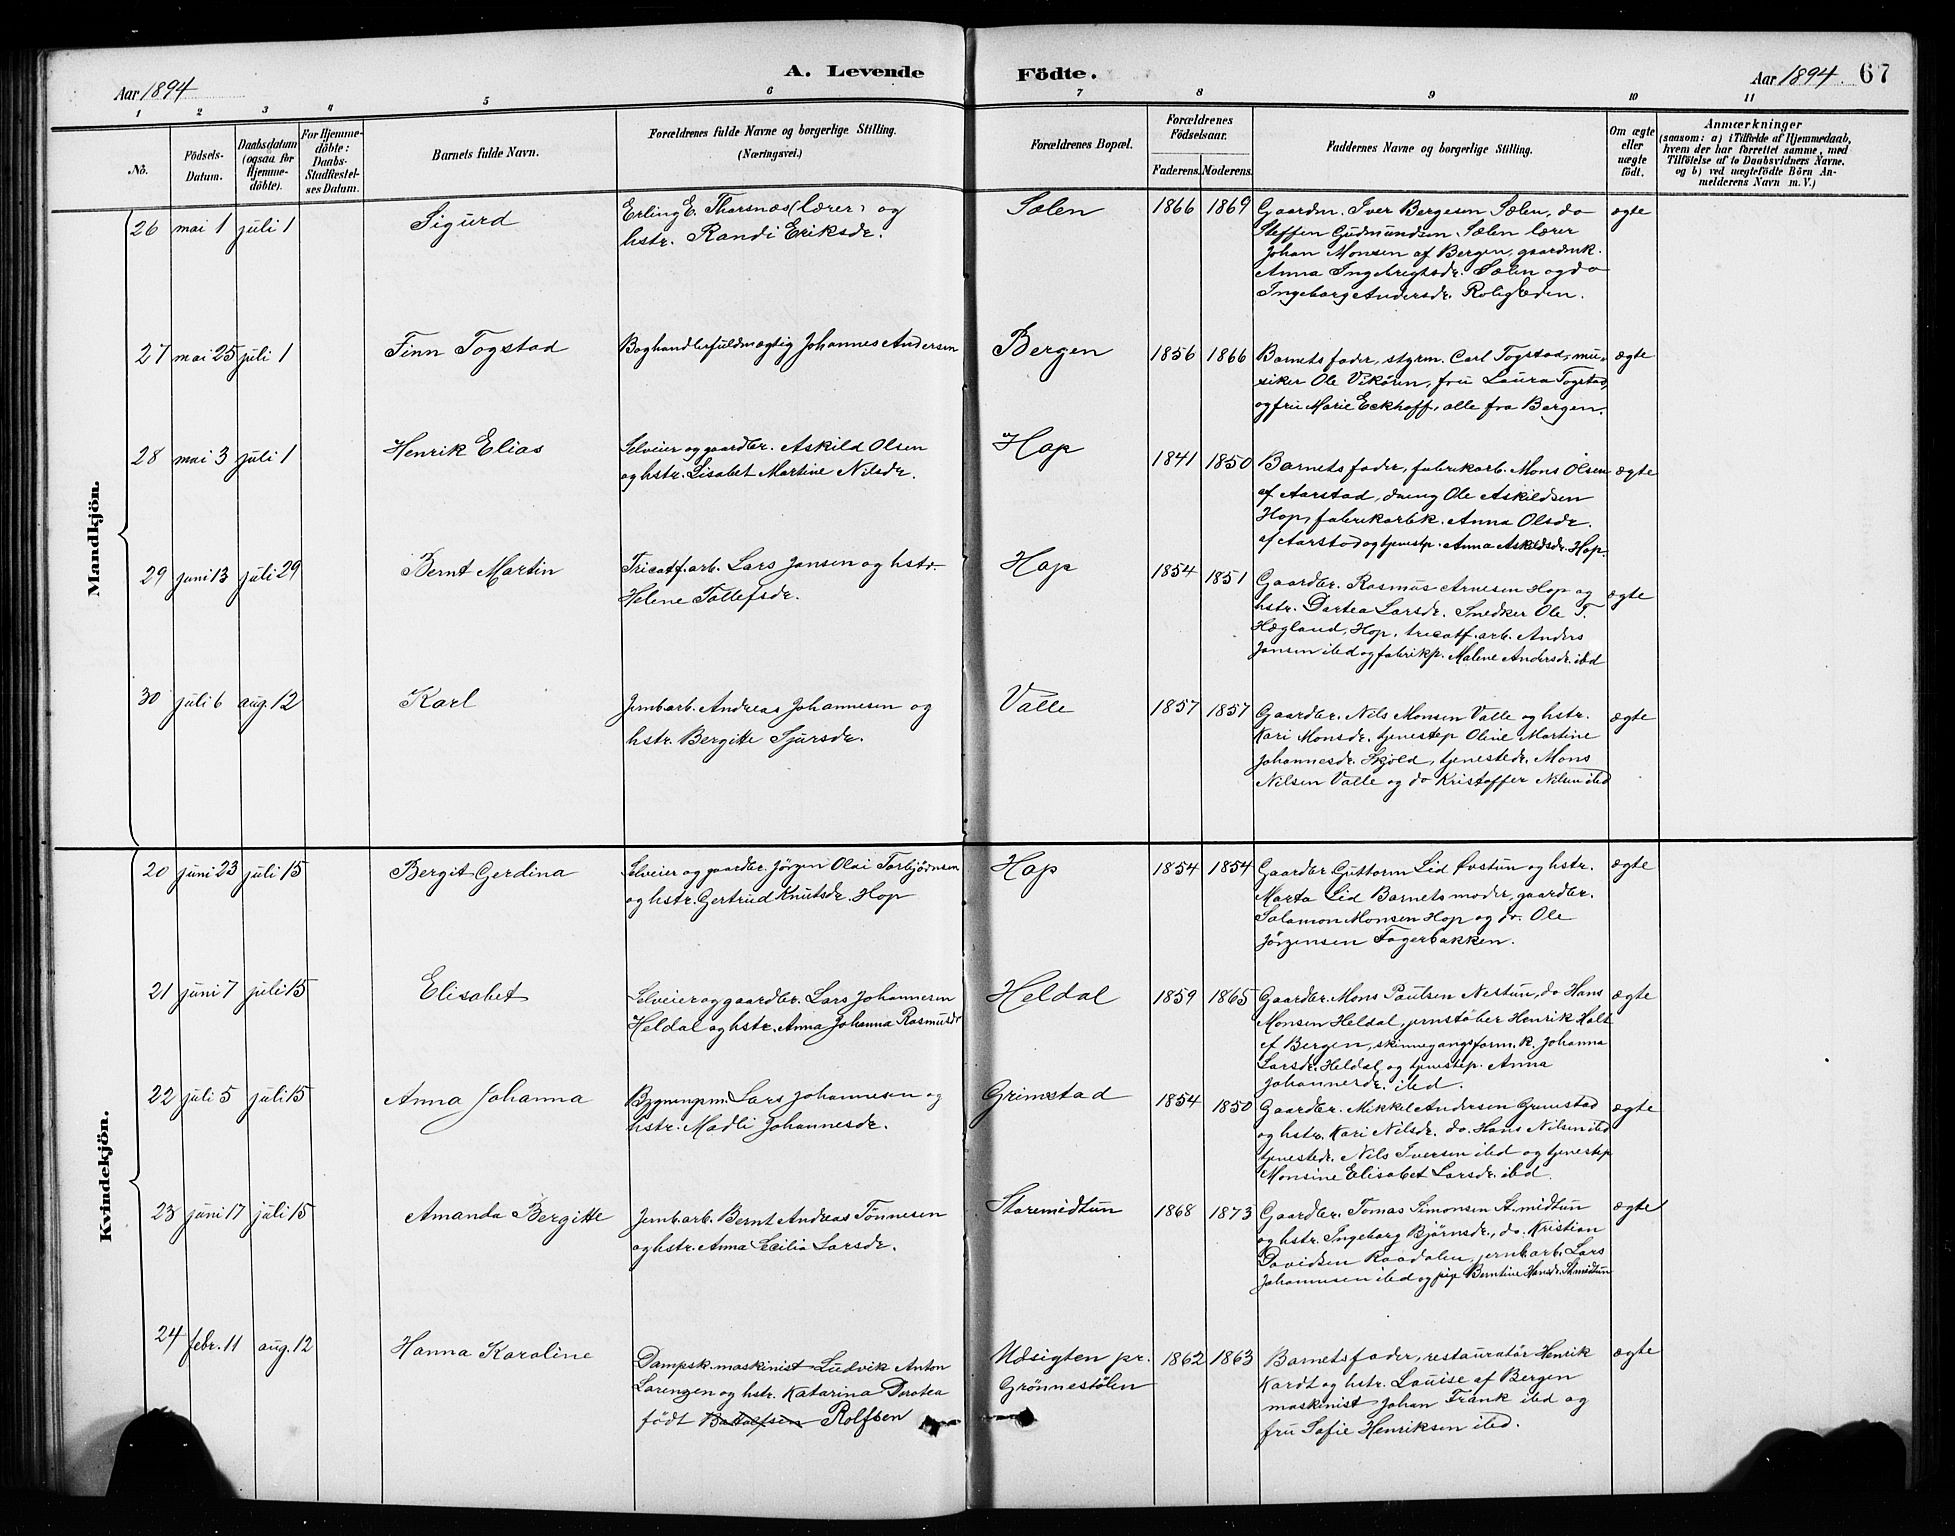 Aar 1894
A. Levende
Födte.
Aar 1894
67
1 2 3 4 5 6 7 8 9 10 11
No.
Födsels-
Datum.
Daabsdatum
(ogsaa for
Hjemme-
döbte).
For Hjemme-
döbte:
Daabs-
Stadfæstel-
ses Datum.
Barnets fulde Navn.
Forældrenes fulde Navne og borgerlige Stilling.
(Næringsvei.)
Forældrenes Bopæl.
Forældrenes
Födselsaar.
Faderens. Moderens.
Faddernes Navne og borgerlige Stilling.
Om ægte
eller
uægte
födt.
Anmærkninger
(saasom: a) i Tilfælde af Hjemmedaab,
hvem der har forrettet samme, med
Tilföielse af to Daabsvidners Navne,
og b) ved uægtefödte Börn An-
melderens Navn m. V.)
Mandkjön.
26 mai 1 juli 1
Sigurd
Erling E. Tharsnæs (lærer) og
hstr. Randi Eriksdr.
Sælen
1866 1869
Gaardm. Iver Bergesen Sælen, do
Steffen Gudmundsen Sælen lærer
Johan Monsen af Bergen, gaardmk.
Anna Ingebrigtsdr. Sælen og do
Ingeborg Andersdr. Roligheden.
ægte
27 mai 25 juli 1
Finn Togstad
Boghandlerfuldmægtig Johannes Andersen
Bergen
1856 1866
Barnets fader, styrm. Carl Togstad, mu-
siker Ole Vikören, fru Laura Togstad,
og fru Marie Eckhoff, alle fra Bergen.
ægte
28 mai 3 juli 1
Henrik Elias
Selveier og gaardbr. Askild Olsen
og hstr. Lisabet Martine Nilsdr.
Hop
1841 1850
Barnets fader, fabrikarb. Mons Olsen
af Aarstad, dreng Ole Askildsen
Hop, fabrikarbk. Anna Olsdr.
af Aarstad og tjenestp. Anna Askildsdr. Hop.
ægte
29 juni 13 juli 29
Bernt Martin
Tricotf. arb. Lars Jansen og hstr.
Helene Tollefsdr.
Hop
1854 1851
Gaardbr. Rasmus Arnesen Hop og
hstr. Dortea Larsdr. Snedker Ole T.
Hægland, Hop, tricotf. arb. Anders
Jansen ibd og fabrikp. Malene Andersdr. ibd
ægte
30 juli 6 aug. 12
Karl
Jernbarb. Andreas Johannesen og
hstr. Bergitte Sjursdr.
Valle
1857 1857
Gaardbr. Nils Monsen Valle og hstr.
Kari Monsdr. tjenestep Oline Martine
Johannesdr. Skjold, tjenestedr. Mons
Nilsen Valle og do Kristoffer Nilsen ibd
ægte
Kvindekjön.
20 juni 23 juli 15
Bergit Gerdina
Selveier og gaardbr. Jörgen Olai Torbjörnsen
og hstr. Gertrud Knutsdr. Hop
Hop
1854 1854
Gaardbr Guttorm Lid Övstun og hstr.
Marta Lid Barnets moder, gaardbr.
Salamon Monsen Hop og do. Ole
Jörgensen Fagerbakken.
ægte
21 juni 7 juli 15
Elisabet
Selveier og gaardbr. Lars Johannesen
Heldal og hstr. Anna Johanna Rasmusdr
Heldal
1859 1865
Gaardbr. Mons Paulsen Nestun, do Hans
Monsen Heldal, jernstöber Henrik Holt
af Bergen, skinnegangsform. k. Johanna
Larsdr. Heldal og tjenestep. Anna
Johannesdr. ibd.
ægte
22 juli 5 juli 15
Anna Johanna
Bygningsm. Lars Johannesen og
hstr. Madli Johannesdr.
Grimstad
1854 1850
Gaardbr. Mikkel Andersen Grimstad
og hstr. Kari Nilsdr. do. Hans Nilsen ibd
tjenestedr. Nils Iversen ibd og tjenestep
Monsine Elisabet Larsdr. ibd.
ægte
23 juni 17 juli 15
Amanda Bergitte
Jernb. arb. Bernt Andreas Tönnesen
og hstr. Anna Cecilia Larsdr.
Storemidtun
1868 1873
Gaardbr. Tomas Simonsen St. midtun
og hstr. Ingeborg Bjørnsdr., do. Kristian
Davidsen Raadalen, jernb. arb. Lars
Johannesen ibd og pige Berntine Hansdr. St. midtun
ægte
24 febr. 11 aug. 12
Hanna Karoline
Dampsk. maskinist Ludvik Anton
Lorengen og hstr. Katarina Dorotea
født Rolfsen
Udsigten pr.
Grönnestölen
1862 1863
Barnets fader, restauratör Henrik
Kardt og hstr. Louise af Bergen
maskinist Johan Frank ibd og
fru Sofie Henriksen ibd.
ægte